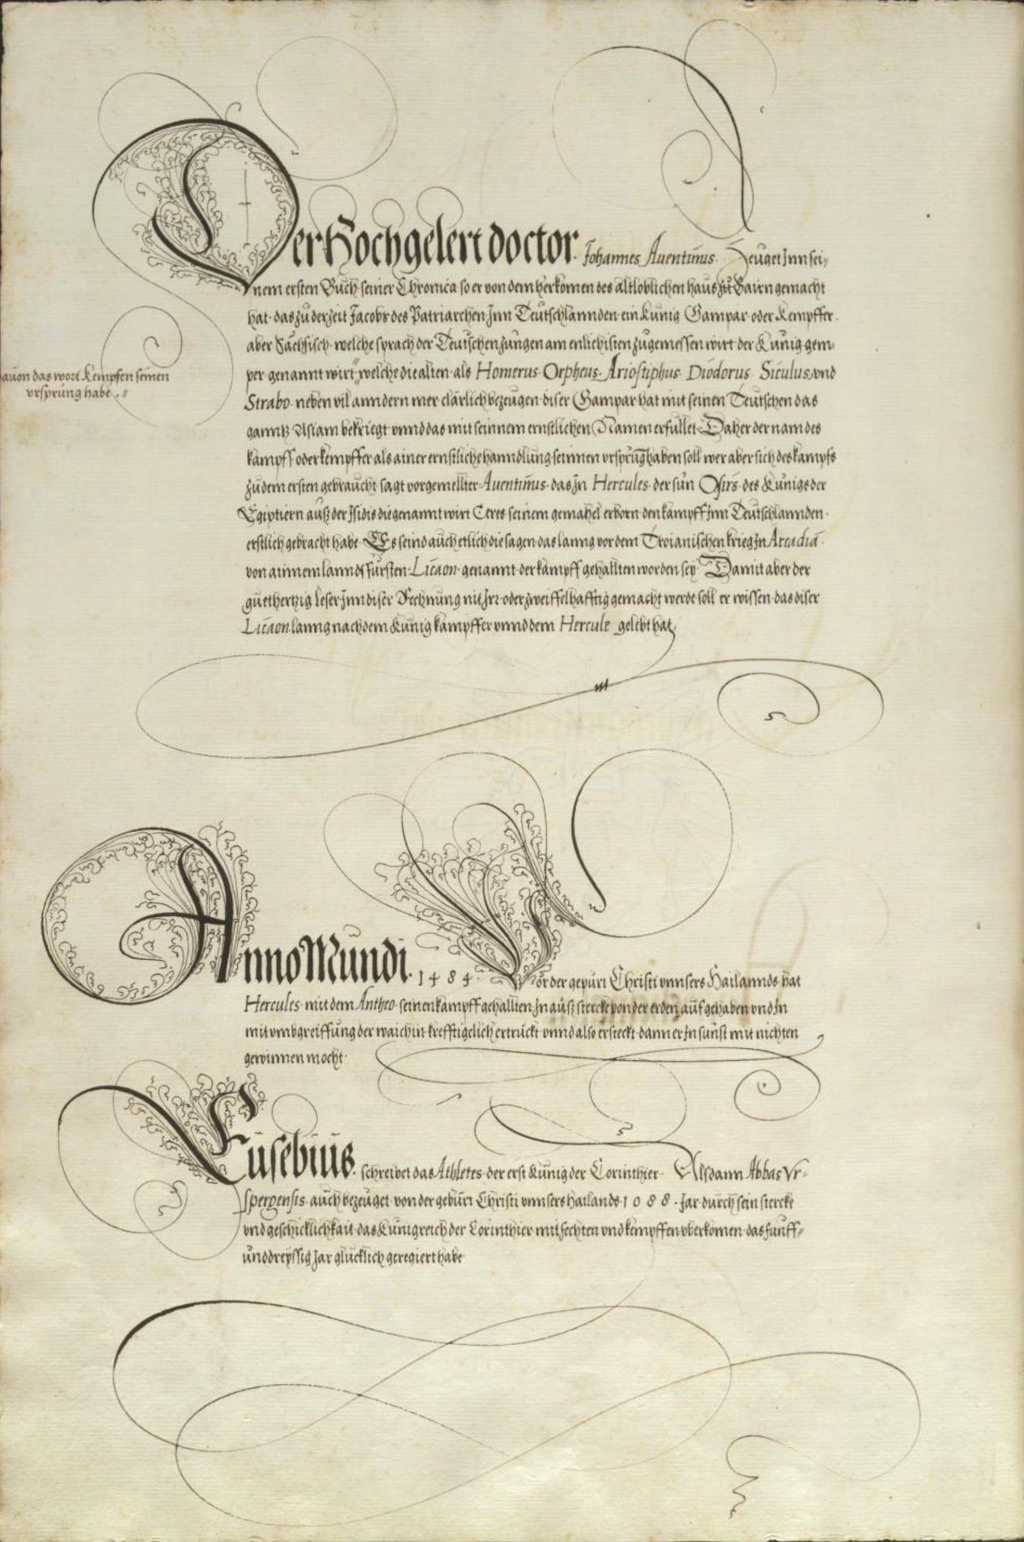 Der Hochgelert doctor. Johannes Auentinus. Zeuget Jnn sei-
nem ersten Buch seiner Chronica so er von dem herkomen des altloblichen haus zu Bairn gemacht
hat. das zu der zeit Jacobs des Patriarchen Jnn Teutschlannden. ein kunig Gampar. oder kempffer.
aber Sachsisch. welche sprach der Teutschen zungen am enlichisten zugemessen wirt der kunig gem-
per genannt wirt. welche die alten als Homerus Orpheus. Ariostiphus Diodorus Siculus. vnd
dauon das wort kempfen seinen
vrsprung habe.
Strabo. neben vil anndern mer clarlich bezeugen. diser Gampar hat mit seinen Teutschen das
gantz Asiam bekriegt vnnd das mit seinnem ernstlichen Namen erfullet. Daher der nam des
kampff oder kempffer als ainer ernstliche hanndlung seinnen vrsprung haben soll wer aber sich des kampfs
zu dem ersten gebraucht. sagt vorgemellter. Auentinus. das Jn Hercules. der sun Osiris. des kunigs der
Egiptiern auß der Isidis die genannt wirt Ceres seinem gemahel erborn. den kampff Jnn Teutschlannden.
erstlich gebracht habe. Es seind auch etlich die sagen das lanng vor dem Troianischen krieg Jn Arcadia.
von ainnem lannds fursten. Licaon. genannt. der kampff gehallten worden sey. Damit aber der
guethertzig leser Jnn diser Rechnung nit Jrr. oder zweiffelhafftig gemacht werde soll er wissen. das diser
Licaon. lanng nach dem kunig kampffer vnnd dem Hercule gelebt hat.
Anno Mundi. 1484. Vor der gepurt Christi vnnsers Hailannds hat
Hercules. mit dem Antheo. seinen kampff gehallten Jn auß sterck von der erden auf gehaben vnd Jn
mit vmbgreiffung der waichin. krefftigelich ertruckt vnnd also ersteckt. dann er Jn sunst mit nichten
gewinnen mocht.
Eusebius. schreibet das Athletes. der erst kunig der Corinthier. Alsdann Abbas Vr-
spergensis. auch bezeuget. von der geburt Christi vnnsers hailands. 1088. Jar durch sein stercke
vnd geschicklichkait. das kunigreich der Corinthier mit fechten vnd kempffen vberkomen. das funff-
unddreyssig Jar glucklich geregiert habe